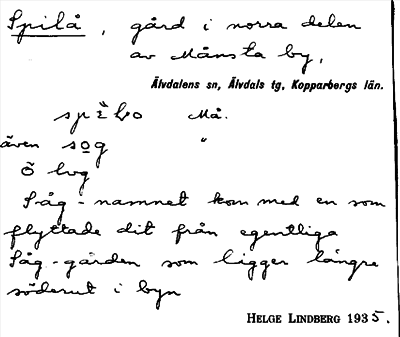 Spilå, gård i norra delen
av Månsta by,
Älvdalens sn, Älvdals tg, Kopparbergs län.
Må.
även sog "
Såg-namnet kom med en som
flyttade dit från egentliga
Såg-gården som ligger längre
söderut i byn
HELGE LINDBERG 1935.